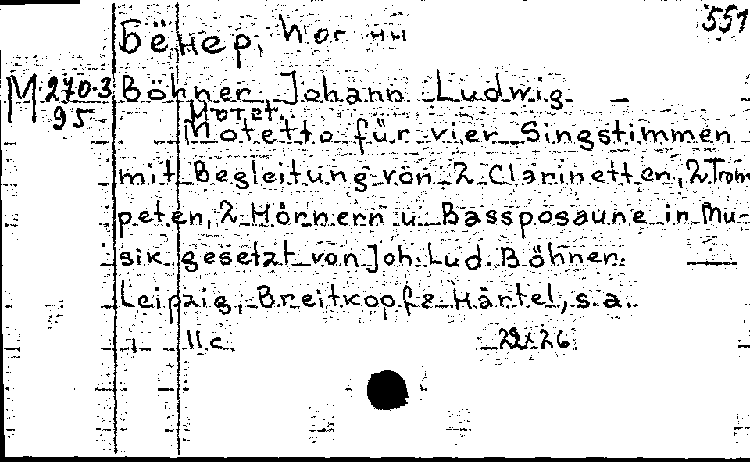 551
Бёнер,
M 270-3 Böhner Johann Ludwig
95 Мотет.
Motetto für vier Singstimmen
mit Begleitung von 2 Clarinetten, 2 Trom
peten, 2 Hörnern u. Bassposaune in Mu-
sik gesetzt von Joh. Lud. Böhner.
Leipzig, Breitkopf & Härtel, s.a.
11 c. 22x26